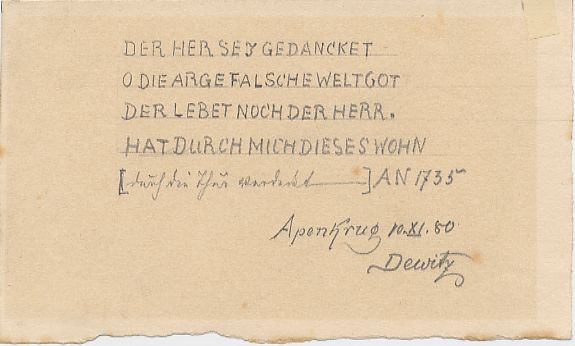 DER HER SEY GEDANCKET
O DIE ARGE FALSCHE WELT GOT
DER LEBET NOCH DER HERR.
HAT DURCH MICH DIESES WOHN
[durch die Thür verdeckt] AN 1735
Apenkrug 10.XI.80
Dewitz